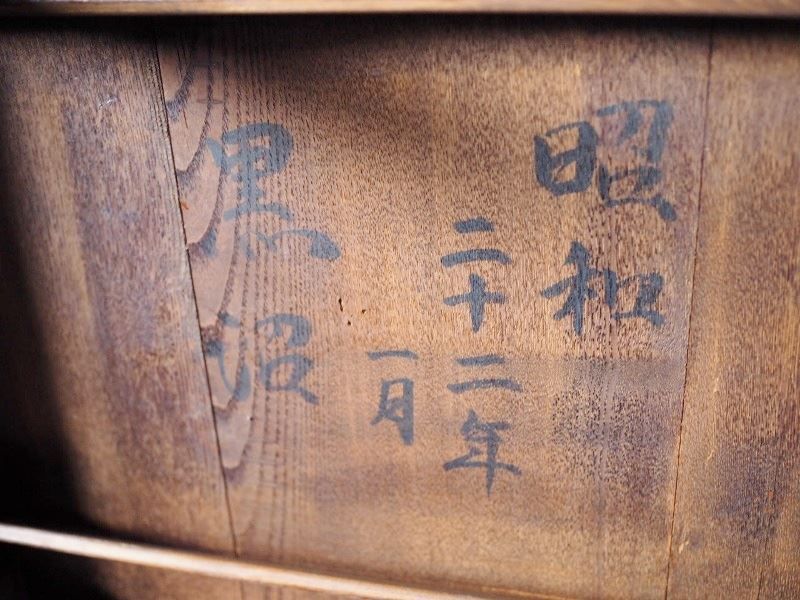 昭和
二十二年
一月
黒沼